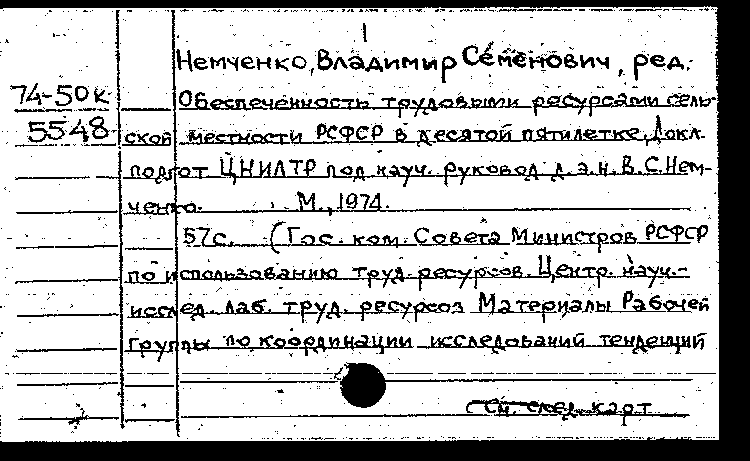 Немченко, Владимир Семенович, ред.
74-50к Обеспеченность трудовыми ресурсами сель-
5548 ской местности РСФСР в десятой пятилетке, Докл.
подгот ЦНИЛТР под науч. руковод д.э.н. В.С. Нем-
ченко. М., 1974.
57с. (Гос. ком. Совета Министров РСФСР
по использованию труд. ресурсов. Центр. науч.-
исслед. лаб. труд. ресурсов Материалы Рабочей
группы по координации исследований тенденций
См. след. карт